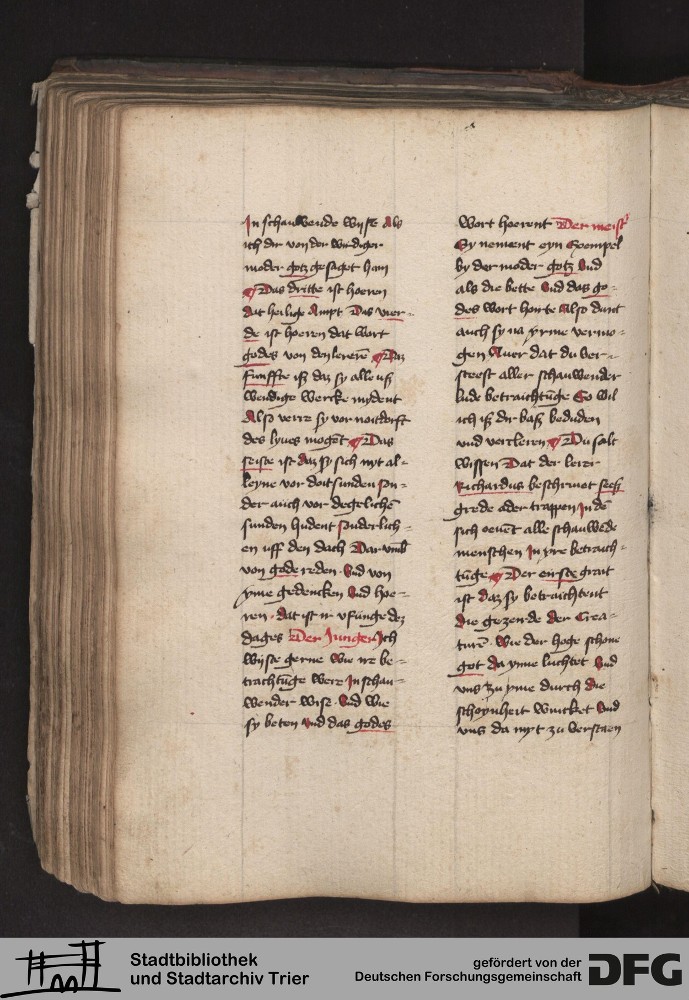 In schauwende wyse Als
ich dir von der wirdiger
moder gotz gesaget han
Das dritte ist hoeren
dat heilige Ampt Das vier-
de ist hoeren dat wort
godes von den lereren Daz
funffte ist daz sy alle uß
wendige wercke mydent
Also verre sy vor noitdorft
des lyues mogēt Das
seiste ist daz sy sich nyt al-
leyne vor doitsunden son-
der auch vor degelichen
sunden hudent sonderlich-
en uff den dach Dar vmb
von gode reden Vnd von
yme gedencken Vnd hoe-
ren dat ist ir vfunge dez
dages Der Junger Ich
wyste gerne wie ire be-
trachtūge were In schau-
wender wise Vnd wie
sy beten Vnd das godes
wort hoerent Der meist
Sy nement eyn Exempel
by der moder gotz Vnd
als die bette Vnd das go-
des wort horte Also dunt
auch sy na yrme vermo-
gen Auer dat du ver-
steest aller schauwender
lude betrachtūge So wil
ich iß dir baß beduden
vnd vercleren Du salt
wissen Dat der lerer
Richardus beschriuet seeß
grede oder trappen In dē
sich oeuēt alle schauwēde
menschen In yre betrach-
tūge Der eirste grait
ist daz sy betrachtent
die gezerde der Crea-
turē Wie der hoge schone
got da yme luchtet Vnd
vns zu yme durch die
schoynheit wincket Vnd
vns da myt zu verstaen
Stadtbibliothek
und Stadtarchiv Trier
gefördert von der
Deutschen Forschungsgemeinschaft
DFG